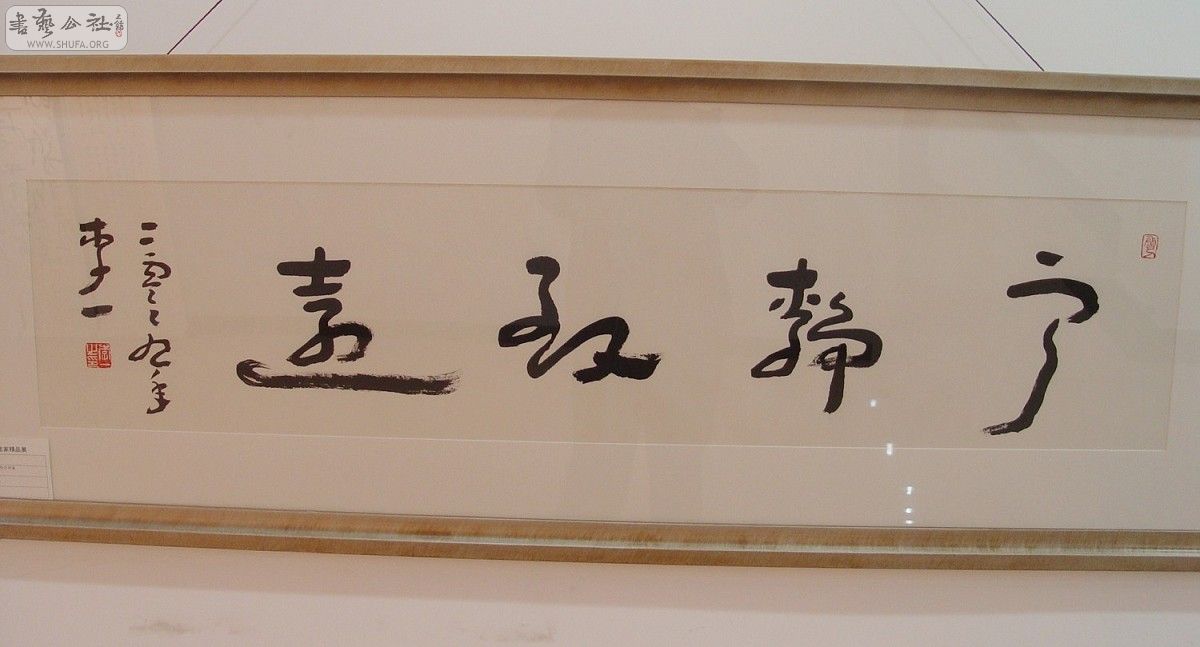 書藝公社
WWW.SHUFA.ORG
宁静致遠
二零零九年
李一